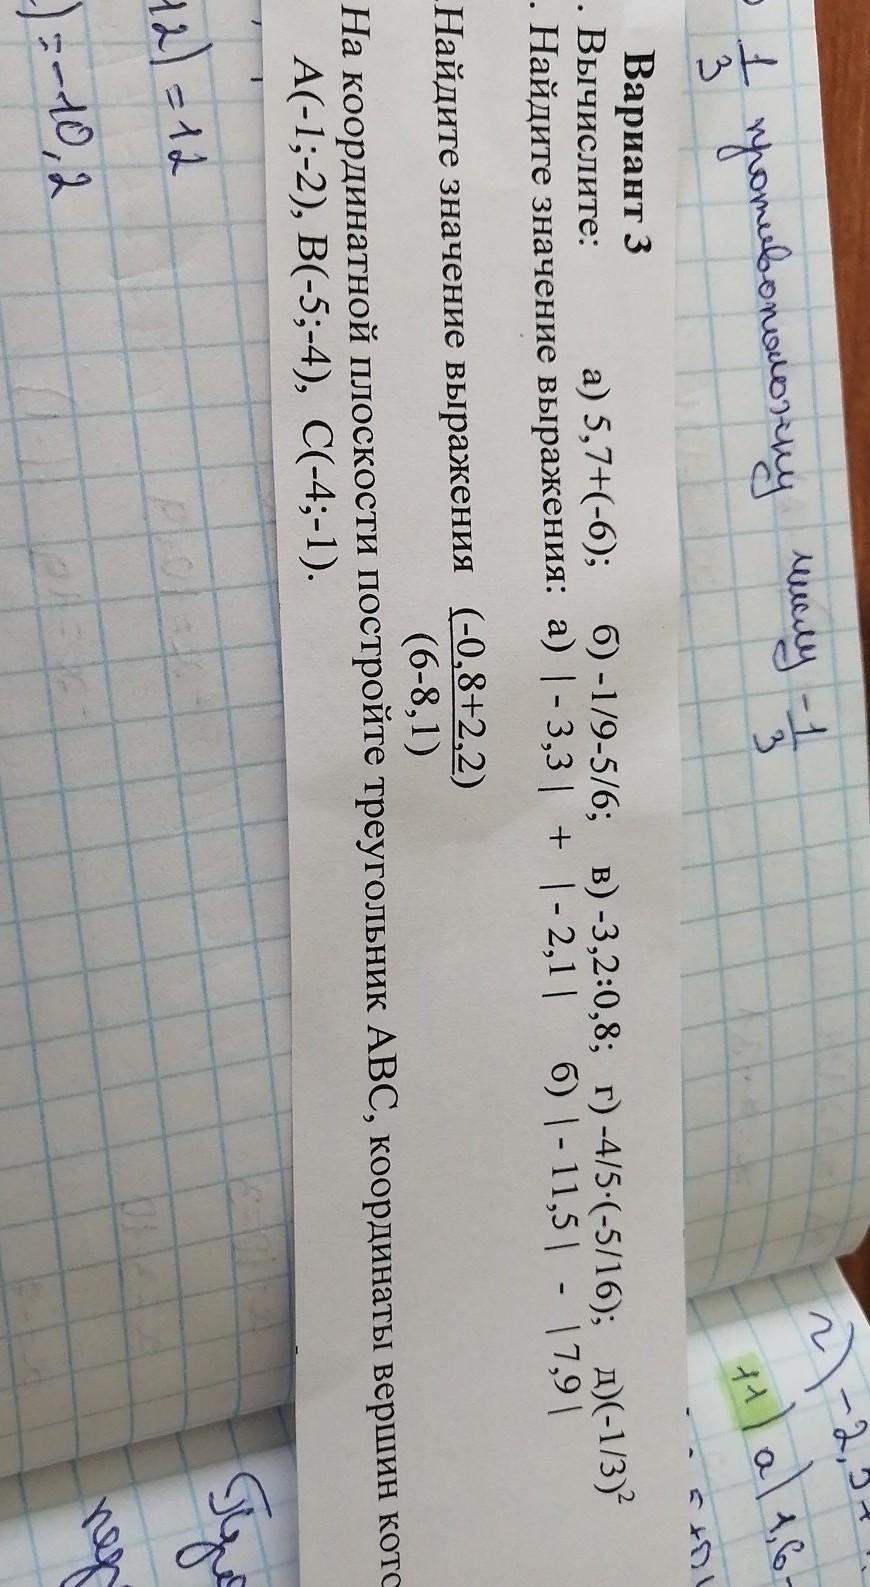 1/3 противоположну числу -1/3
Вариант 3
. Вычислите: а) 5,7+(-6); б) -1/9-5/6; в) -3,2:0,8; г) -4/5·(-5/16); д)(-1/3)²
. Найдите значение выражения: а) | - 3,3 | + | - 2,1 | б) | - 11,5 | - | 7,9 |
.Найдите значение выражения (-0,8+2,2)
(6-8,1)
На координатной плоскости постройте треугольник АВС, координаты вершин кото
А(-1;-2), В(-5;-4), С(-4;-1).
12) = 12
) = -10,2
г) -2,
11) а) 1,6-